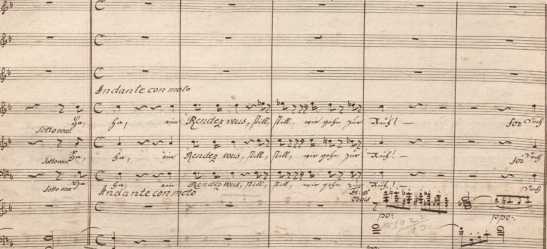 Andante con moto
Ha, Ha, ein Rendez vous, still, still, wir gehn zur Ruh! —
sotto voce
Ha, Ha, ein Rendez vous, still, still, wir gehn zur Ruh! —
sotto voce
Ha, Ha, ein Rendez vous, still, still, wir gehn zur Ruh! —
sotto voce
Andante con moto
ppo: ppo: